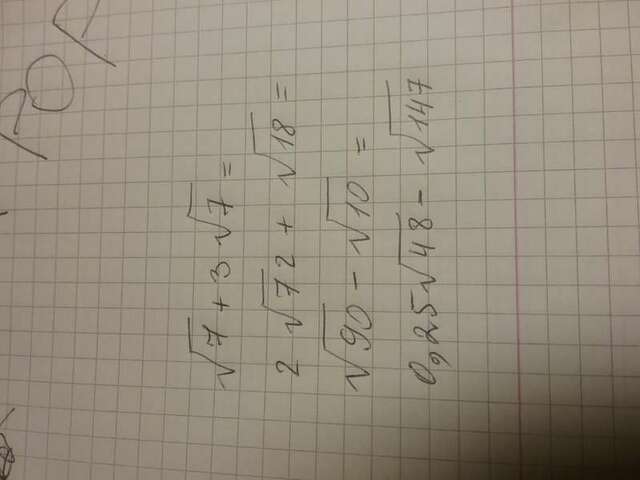 √7 + 3√7 =
2√72 + √18 =
√90 - √10 =
0,25√48 - √147